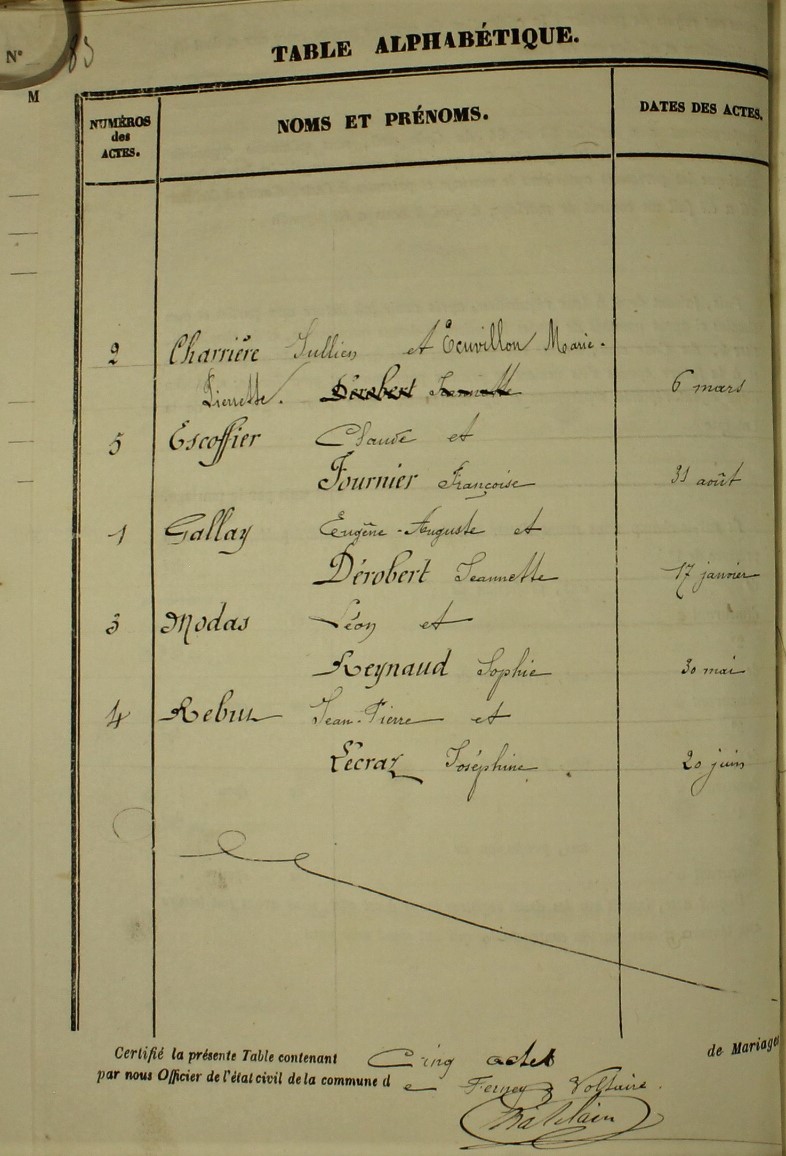 N°
83
M
TABLE ALPHABÉTIQUE.
NUMÉROS des ACTES. NOMS ET PRÉNOMS. DATES DES ACTES.
2 Charrière Jullien et Marie-
Pierrette. Dérobert Jeannette 6 mars
5 Escoffier Claude et
Fournier Françoise 31 août
1 Gallay Eugène-Auguste et
Dérobert Jeannette 17 janvier
3 Modas Léon et
Reynaud Sophie 30 mai
4 Jean-Pierre et
Lecraz Joséphine. 20 juin
Certifié la présente Table contenant Cinq actes de Mariage
par nous Officier de l'état civil de la commune de Ferney-Voltaire.